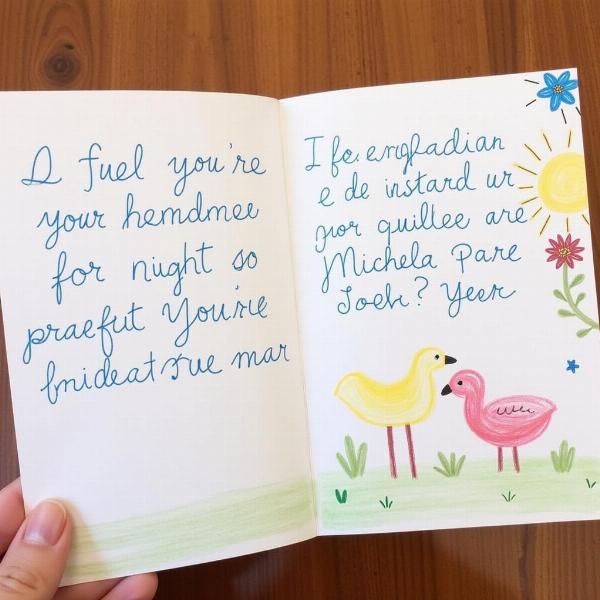 I fuel you're
your hemdmee
for nught so
praefut You're
mar
I fe. engladian
e de instard ur
gor quillee are
Michela Pare
Soeh? Yeer